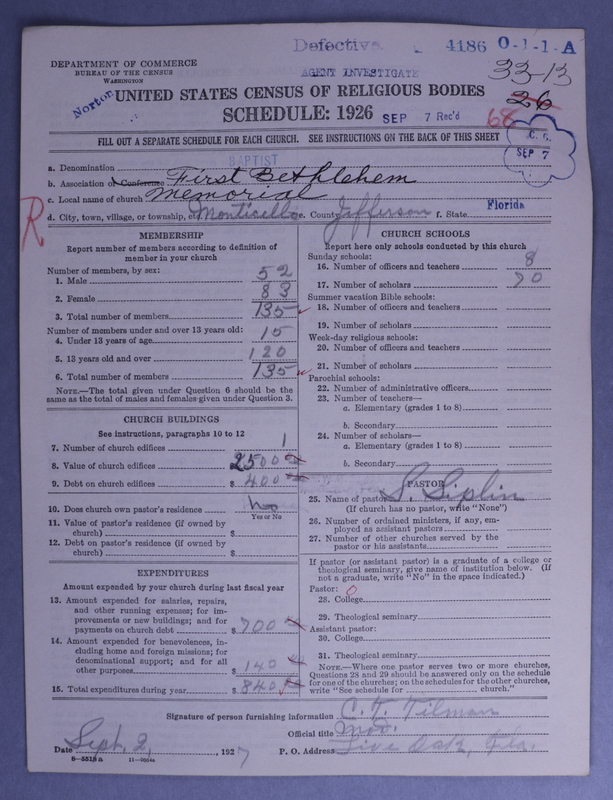 Defective 4186 O-1-1-A
DEPARTMENT OF COMMERCE
BUREAU OF THE CENSUS
WASHINGTON
AGENT INVESTIGATE
33-13
26
Norton
UNITED STATES CENSUS OF RELIGIOUS BODIES
SCHEDULE: 1926
SEP 7 Rec'd
68
FILL OUT A SEPARATE SCHEDULE FOR EACH CHURCH. SEE INSTRUCTIONS ON THE BACK OF THIS SHEET
SEP 7
a. Denomination BAPTIST
b. Association or Conference First Bethlehem
c. Local name of church Memorial
d. City, town, village, or township, etc. Monticello e. County Jefferson f. State Florida
R
MEMBERSHIP
Report number of members according to definition of
member in your church
Number of members, by sex:
1. Male 52
2. Female 83
3. Total number of members 135
Number of members under and over 13 years old:
4. Under 13 years of age 15
5. 13 years old and over 120
6. Total number of members 135
NOTE.—The total given under Question 6 should be the
same as the total of males and females given under Question 3.
CHURCH BUILDINGS
See instructions, paragraphs 10 to 12
7. Number of church edifices 1
8. Value of church edifices $ 2500
9. Debt on church edifices $ 400
10. Does church own pastor's residence no
Yes or No
11. Value of pastor's residence (if owned by
church) $
12. Debt on pastor's residence (if owned by
church) $
EXPENDITURES
Amount expended by church during last fiscal year
13. Amount expended for salaries, repairs,
and other running expenses; for im-
provements or new buildings; and for
payments on church debt $ 700
14. Amount expended for benevolences, in-
cluding home and foreign missions; for
denominational support; and for all
other purposes $ 140
15. Total expenditures during year $ 840
CHURCH SCHOOLS
Report here only schools conducted by this church
Sunday schools:
16. Number of officers and teachers 8
17. Number of scholars 70
Summer vacation Bible schools:
18. Number of officers and teachers
19. Number of scholars
Week-day religious schools:
20. Number of officers and teachers
21. Number of scholars
Parochial schools:
22. Number of administrative officers
23. Number of teachers—
a. Elementary (grades 1 to 8)
b. Secondary
24. Number of scholars—
a. Elementary (grades 1 to 8)
b. Secondary
PASTOR
25. Name of pastor S. Siplin
(If church has no pastor, write "None")
26. Number of ordained ministers, if any, em-
ployed as assistant pastors
27. Number of other churches served by the
pastor or his assistants
If pastor (or assistant pastor) is a graduate of a college or
theological seminary, give name of institution below. (If
not a graduate, write "No" in the space indicated.)
Pastor: 0
28. College
29. Theological seminary
Assistant pastor:
30. College
31. Theological seminary
NOTE.—Where one pastor serves two or more churches,
Questions 28 and 29 should be answered only on the schedule
for one of the churches; on the schedules for the other churches,
write "See schedule for church."
Signature of person furnishing information C. F. Tilman
Official title Mod.
Date Sept. 2, , 1927 P. O. Address Live Oak, Fla.
8-5518 a 11-9554a